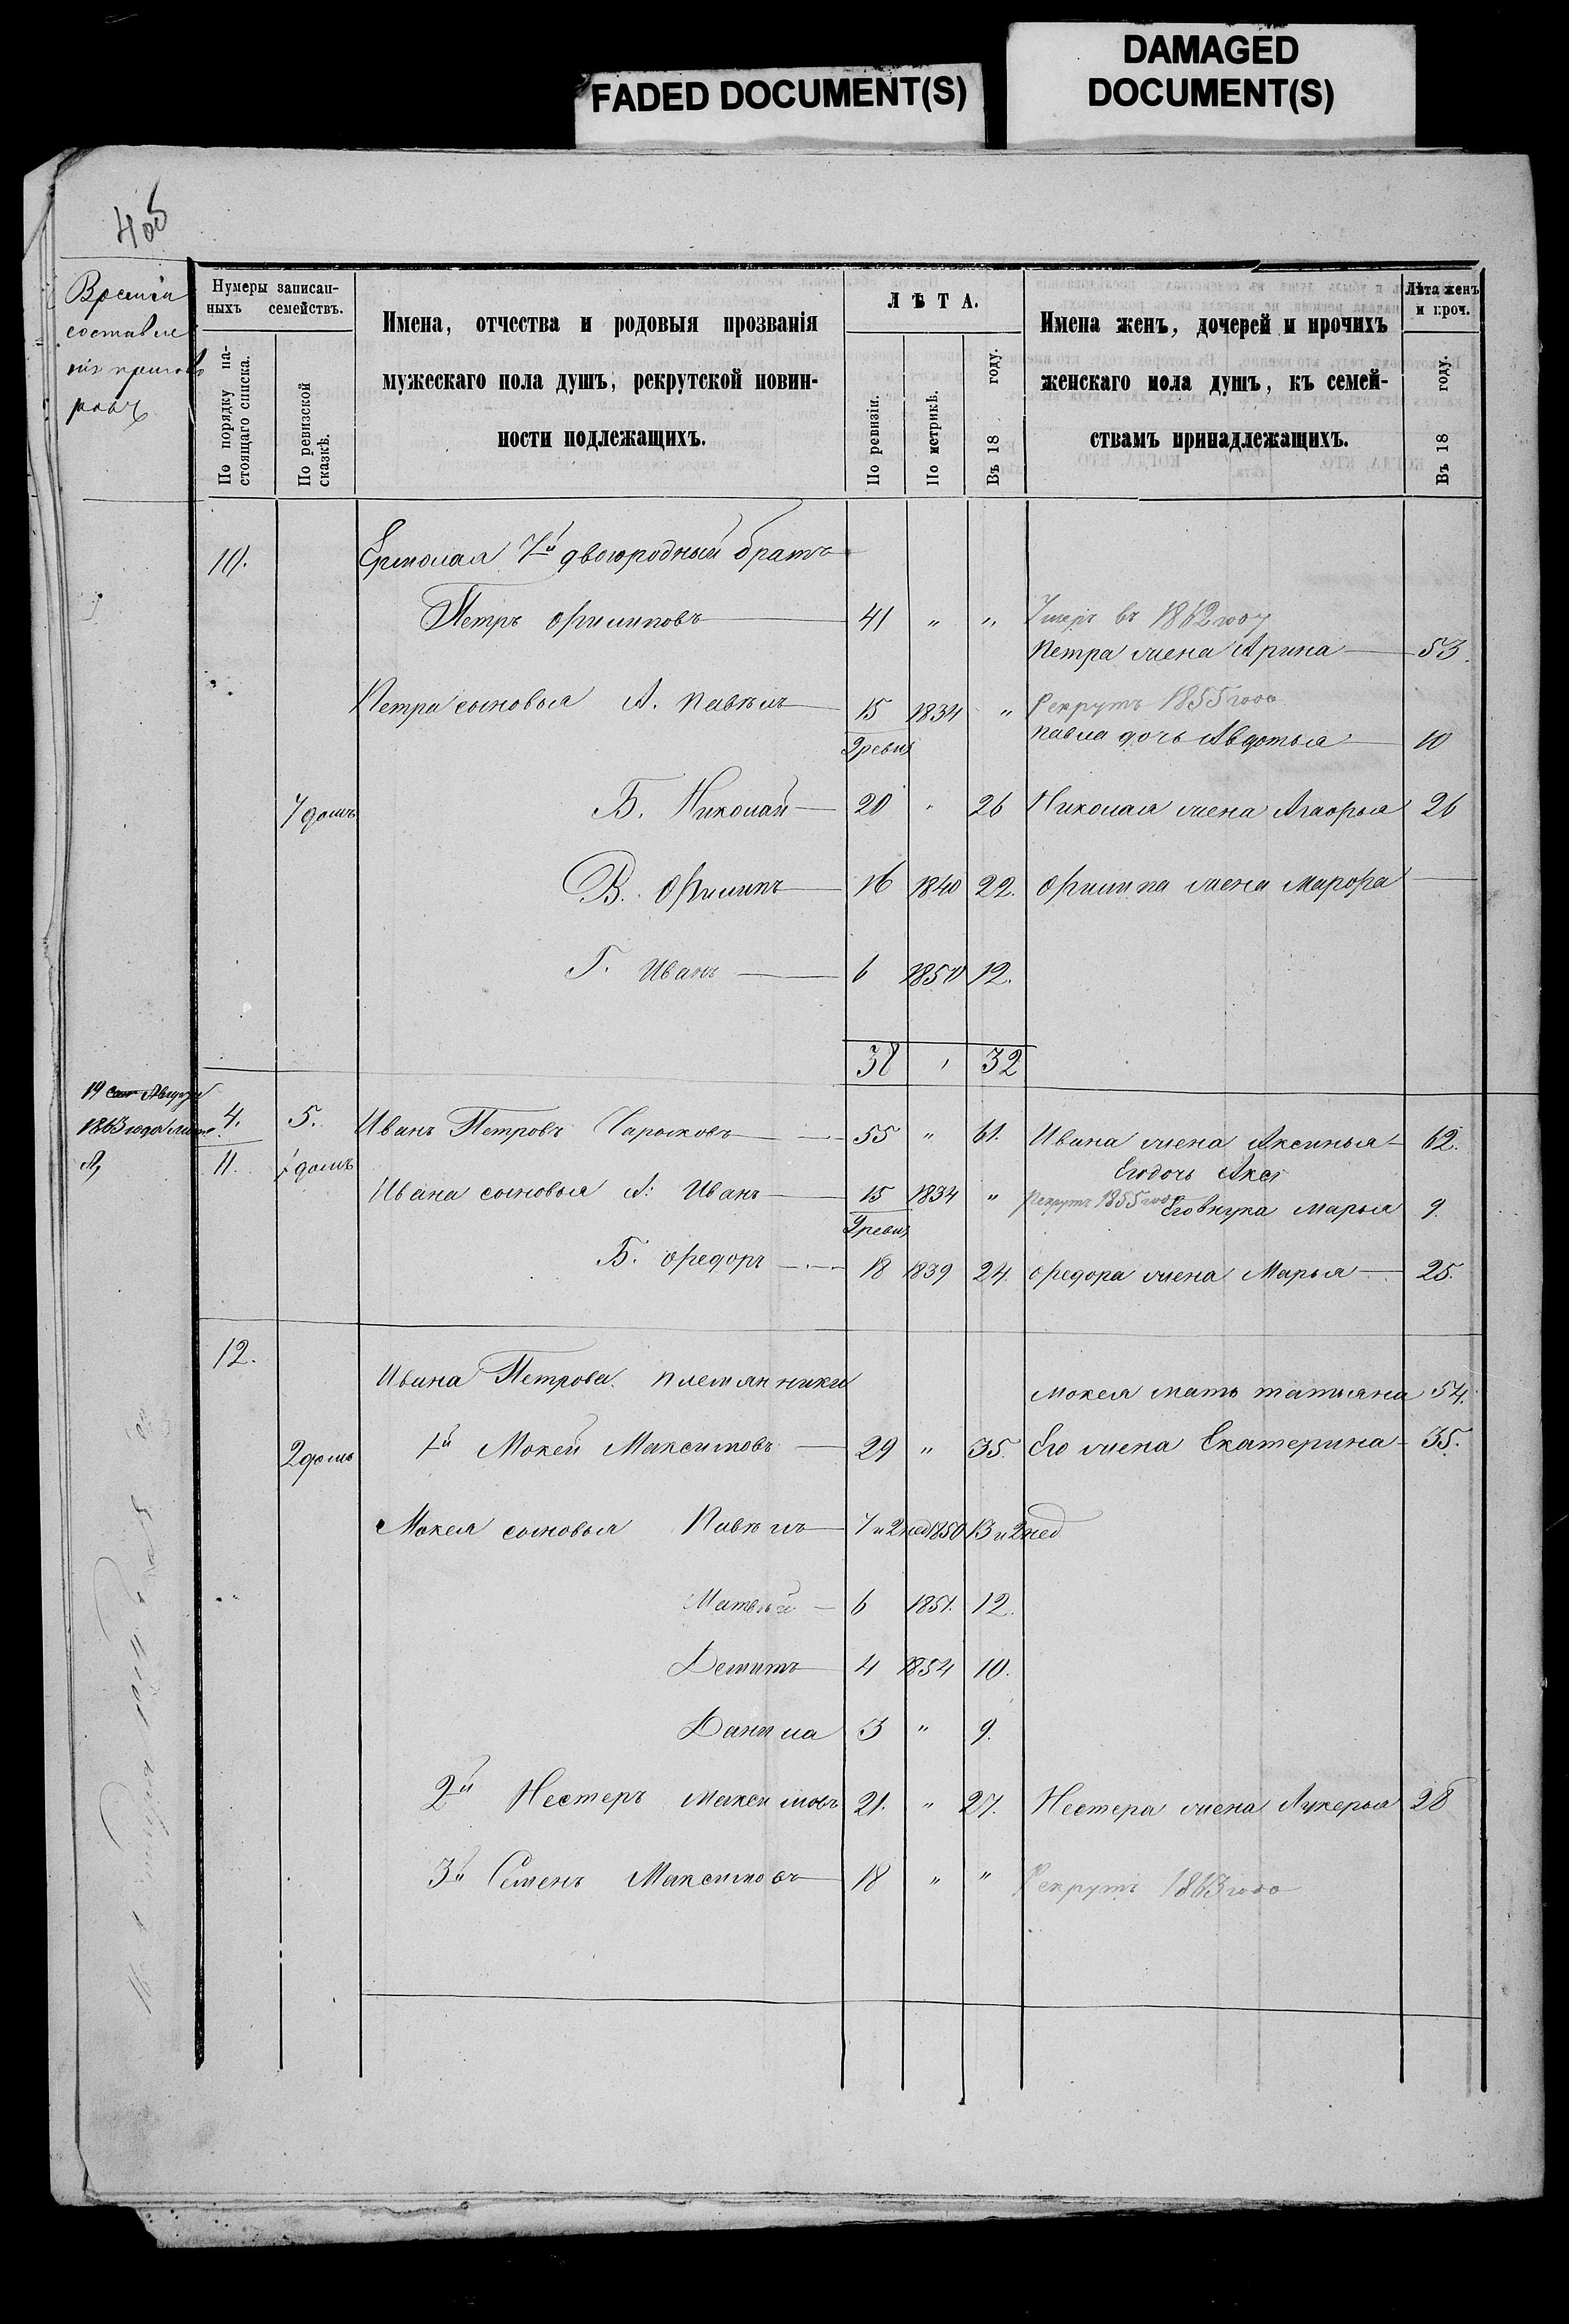 FADED DOCUMENT(S)
DAMAGED
DOCUMENT(S)
Время
составле
нія
Нумеры записан-
ныхъ семействъ.
По порядку на-
стоящаго списка.
По ревизской
сказкѣ.
Имена, отчества и родовыя прозванія
мужескаго пола душъ, рекрутской повин-
ности подлежащихъ.
ЛѢТА.
По ревизіи.
По метрикѣ.
Въ 18 году.
Имена женъ, дочерей и прочихъ
женскаго пола душъ, къ семей-
ствамъ принадлежащихъ.
Лѣта женъ
и проч.
Въ 18 году.
10. Ермолая 7й двоюродный братъ
Петръ Филиповъ 41 " " Умеръ въ 1862 году
Петра жена Арина 53.
Петра сыновья А. Павелъ 15 1834 " Рекрутъ 1855 года
9 ревиз Павла дочь Авдотья 10
7 домъ Б. Николай 20 " 26 Николая жена Агафья 26
В. Филипъ 16 1840 22. Филипа жена Марфа
Г. Иванъ 6 1850 12.
38 " 32
19 Августа
1863 года
4. 5. Иванъ Петровъ 55 " 61. Ивана жена Аксинья 62.
11. 1 домъ Его дочь Акс
Ивана сыновья А: Иванъ 15 1834 " Рекрутъ 1855 года Его внука Марья 9.
9 ревиз
Б. Федоръ 18 1839 24. Федора жена Марья 25.
12. Ивана Петрова племянники Мокея мать Татьяна 54.
2 домъ 1й Мокей Максимовъ 29 " 35. Его жена Екатерина 35.
Мокея сыновья Павелъ 7 и 2 нед 1850 13 и 2 нед
Матвѣй 6 1851. 12.
Демитъ 4 1854 10.
Данила 3 " 9.
2й Нестеръ Максимовъ 21. " 27. Нестера жена Лукерья 28
3й Семенъ Максимовъ 18 " " Рекрутъ 1863 года